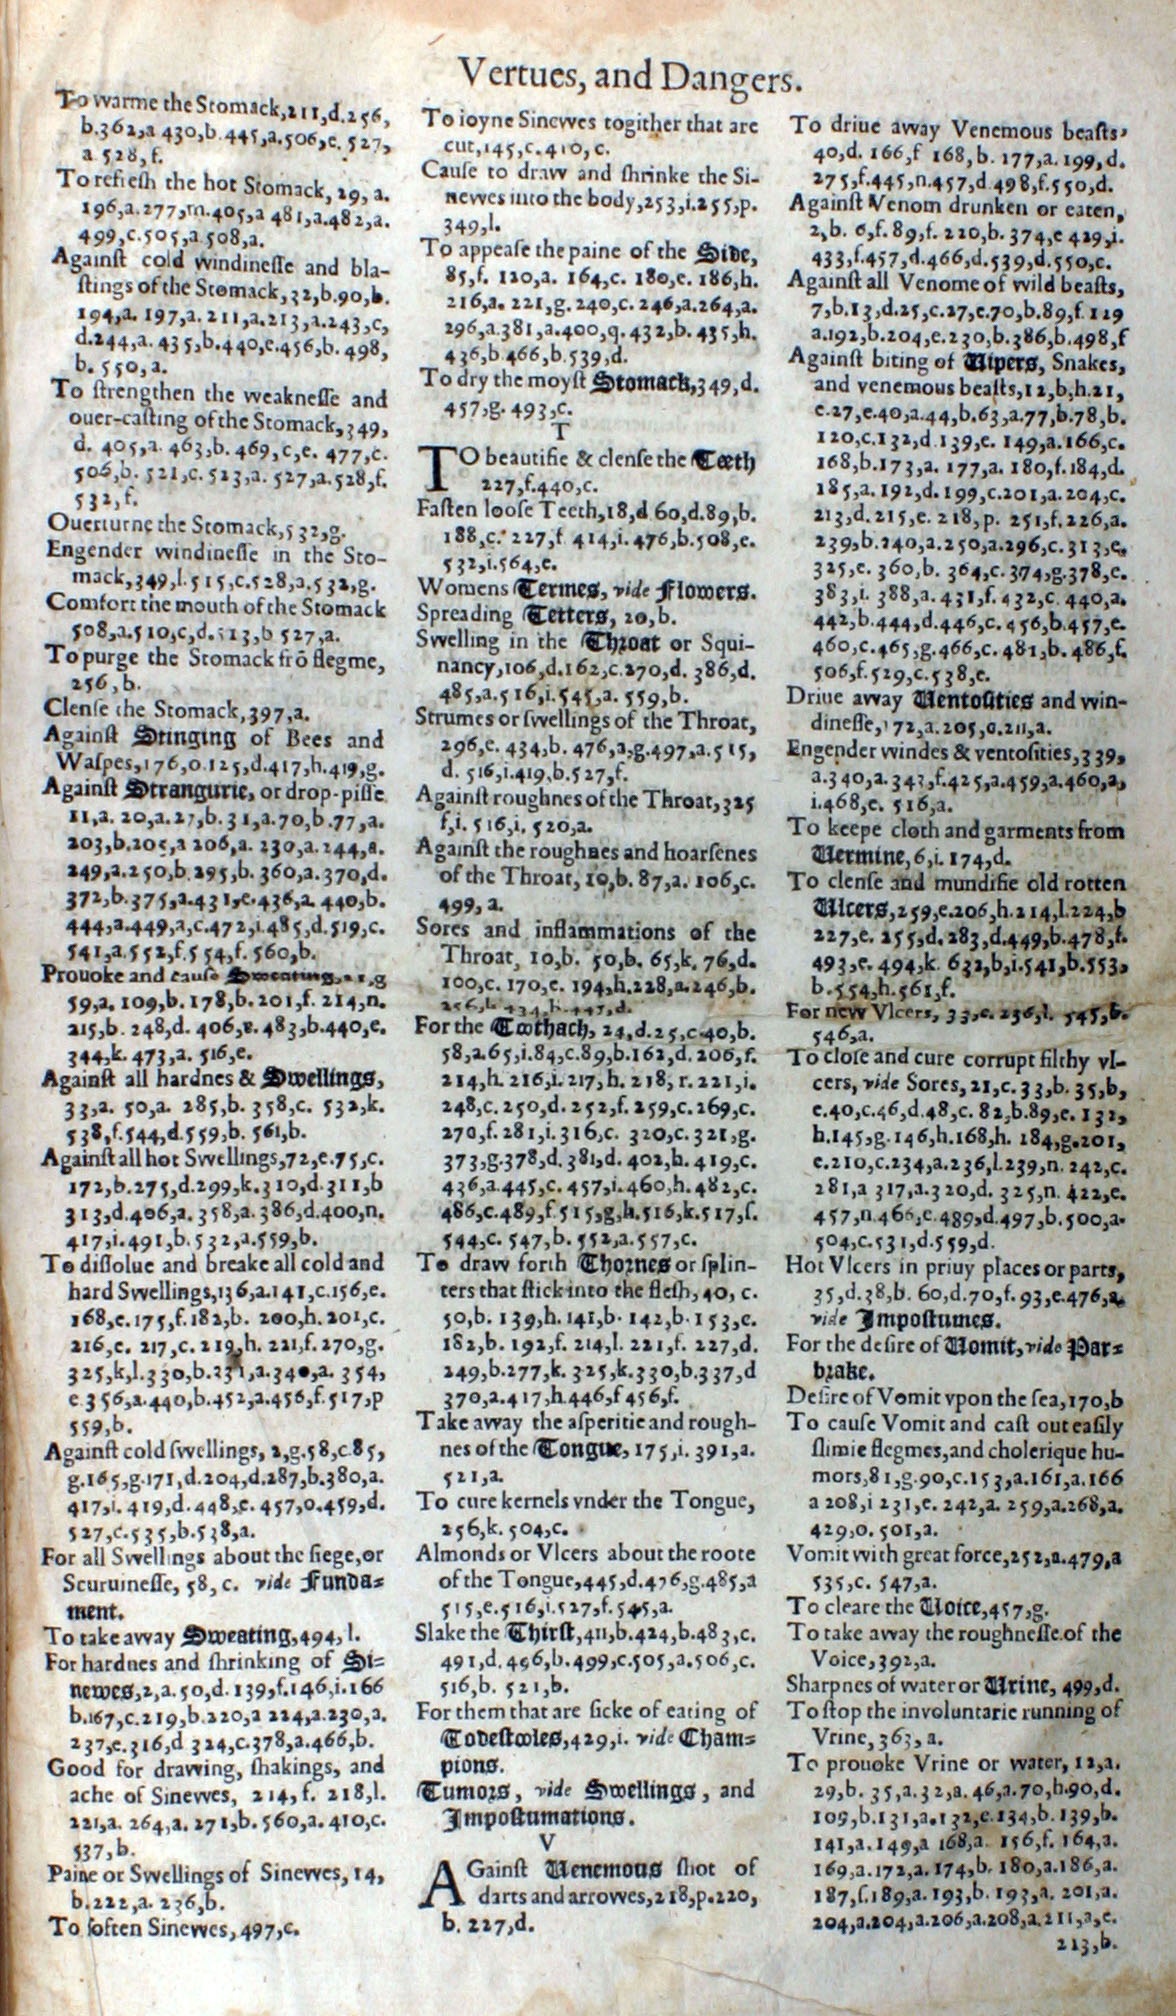 Vertues, and Dangers.
To warme the Stomack,211,d.256,
b.362,a 430,b.445,a.506,e. 527,
a 528,f.
To refresh the hot Stomack, 29, a.
196,a.277,m.405,a 481,a.482,a.
499,c.505,a 508,a.
Against cold windinesse and bla-
stings of the Stomack,32,b.90,b.
194,a. 197,a. 211,a.213,a.243,c,
d.244,a. 435,b.440,e.456,b. 498,
b. 550,a.
To strengthen the weaknesse and
ouer-casting of the Stomack,349,
d. 405,a. 463,b. 469,c,e. 477,c.
506,b. 521,c. 523,a. 527,a.528,f.
532,f.
Ouerturne the Stomack,532,g.
Engender windinesse in the Sto-
mack,349,l.515,c.528,a.532,g.
Comfort the mouth of the Stomack
508,a.510,c,d.513,b 527,a.
To purge the Stomack frō flegme,
256,b.
Clense the Stomack,397,a.
Against Stinging of Bees and
Waspes,176,o.125,d.417,h.419,g.
Against Strangurie, or drop-pisse
11,a. 20,a.27,b.31,a.70,b.77,a.
203,b.205,a 206,a. 230,a.244,a.
249,a.250,b.295,b. 360,a.370,d.
372,b.375,a.431,e.436,a. 440,b.
444,a.449,a,c.472,i.485,d.519,c.
541,a.552,f.554,f. 560,b.
Prouoke and cause Sweating,
59,a. 109,b. 178,b. 201,f. 214,n.
215,b. 248,d. 406,e. 483,b.440,e.
344,k. 473,a. 516,e.
Against all hardnes & Swellings,
33,a. 50,a. 285,b. 358,c. 532,k.
538,f.544,d.559,b. 561,b.
Against all hot Swellings,72,e.75,c.
172,b.275,d.299,k.310,d.311,b
313,d.406,a. 358,a.386,d.400,n.
417,i.491,b.532,a.559,b.
To dissolue and breake all cold and
hard Swellings,136,a.141,c.156,e.
168,e.175,f.182,b. 200,h.201,c.
216,e. 217,c. 219,h. 221,f.270,g.
325,k,l.330,b.331,a.340,a. 354,
e 356,a.440,b.452,a.456,f.517,p
559,b.
Against cold swellings, 2,g.58,c.85,
g.165,g.171,d.204,d.287,b.380,a.
417,i. 419,d.448,e. 457,o.459,d.
527,c.535,b.538,a.
For all Swellings about the siege,or
Scuruinesse, 58, c. vide Funda-
ment.
To take away Sweating,494,l.
For hardnes and shrinking of Si-
newes,2,a.50,d. 139,f.146,i.166
b.167,c.219,b.220,a 224,a.230,a.
237,e.316,d 324,c.378,a.466,b.
Good for drawing, shakings, and
ache of Sinewes, 214,f. 218,l.
221,a. 264,a. 271,b. 560,a. 410,c.
537,b.
Paine or Swellings of Sinewes, 14,
b.222,a. 236,b.
To soften Sinewes,497,c.
To ioyne Sinewes togither that are
cut,145,c.410,c.
Cause to draw and shrinke the Si-
newes into the body,253,i.255,p.
349,l.
To appease the paine of the Side,
85,f. 120,a. 164,c. 180,e. 186,h.
216,a. 221,g. 240,c. 246,a.264,a.
296,a.381,a.400,q. 432,b. 435,h.
436,b.466,b.539,d.
To dry the moyst Stomack,349,d.
457,g. 493,c.
T
TO beautifie & clense the Teeth
227,f.440,c.
Fasten loose Teeth,18,d 60,d.89,b.
188,c. 227,f 414,i. 476,b.508,e.
532,i.564,e.
Womens Termes, vide Flowers.
Spreading Tetters, 20,b.
Swelling in the Throat or Squi-
nancy,106,d.162,c.270,d. 386,d.
485,a.516,i.545,a. 559,b.
Strumes or swellings of the Throat,
296,e. 434,b. 476,a,g.497,a.515,
d. 516,i.419,b.527,f.
Against roughnes of the Throat,325
f,i. 516,i. 520,a.
Against the roughnes and hoarsenes
of the Throat, 10,b. 87,a. 106,c.
499, a.
Sores and inflammations of the
Throat, 10,b. 50,b. 65,k. 76,d.
100,c. 170,e. 194,h.228,a.246,b.
256,k. 434,h.445,d.
For the Toothach, 24,d.25,c.40,b.
58,a.65,i.84,c.89,b.162,d. 206,f.
214,h. 216,i. 217,h. 218, r. 221,i.
248,c. 250,d. 252,f. 259,c. 269,c.
270,f. 281,i. 316,c. 320,c. 321,g.
373,g.378,d. 381,d. 402,h. 419,c.
436,a.445,c. 457,i.460,h. 482,c.
486,c.489,f.515,g,h.516,k.517,f.
544,c. 547,b. 552,a.557,c.
To draw forth Thornes or splin-
ters that stick into the flesh, 40, c.
50,b. 139,h. 141,b. 142,b. 153,e.
182,b. 192,f. 214,l. 221,f. 227,d.
249,b.277,k. 325,k.330,b.337,d
370,a.417,h.446,f 456,f.
Take away the asperitie and rough-
nes of the Tongue, 175,i. 391,a.
521,a.
To cure kernels vnder the Tongue,
256,k. 504,c.
Almonds or Vlcers about the roote
of the Tongue,445,d.476,g.485,a
515,e.516,i.527,f. 545,a.
Slake the Thirst,411,b.424,b.483,c.
491,d. 496,b. 499,c.505,a.506,c.
516,b. 521,b.
For them that are sicke of eating of
Todestooles,429,i. vide Cham-
pions.
Tumors, vide Swellings, and
Impostumations.
V
AGainst Venemous shot of
darts and arrowes,218,p.220,
b. 227,d.
To driue away Venemous beasts,
40,d. 166,f 168,b. 177,a. 199,d.
275,f.445,n.457,d 498,f.550,d.
Against Venom drunken or eaten,
2,b. 6,f. 89,f. 220,b. 374,e 429,i.
433,f.457,d.466,d.539,d.550,c.
Against all Venome of wild beasts,
7,b.13,d.25,c.27,e.70,b.89,f.129
a.192,b.204,e.230,b.386,b.498,f
Against biting of Vipers, Snakes,
and venemous beasts,12,b,h.21,
e.27,e.40,a.44,b.63,a.77,b.78,b.
120,c.132,d.139,e. 149,a.166,c.
168,b.173,a. 177,a. 180,f.184,d.
185,a. 192,d. 199,c.201,a. 204,c.
213,d. 215,e. 218,p. 251,f.226,a.
239,b.240,a.250,a.296,c.313,e.
325,e. 360,b. 364,c.374,g.378,e.
383,i. 388,a. 431,f. 432,c. 440,a.
442,b.444,d.446,c. 456,b.457,e.
460,c.465,g.466,c. 481,b. 486,f.
506,f.529,c.538,e.
Driue away Ventosities and win-
dinesse,172,a.205,o.211,a.
Engender windes & ventosities,339,
a.340,a. 343,f.425,a.459,a.460,a,
i.468,e. 516,a.
To keepe cloth and garments from
Vermine,6,i. 174,d.
To clense and mundifie old rotten
Ulcers,259,e.206,h.214,l.224,b
227,e. 255,d. 283,d.449,b.478,f.
493,e. 494,k. 632,b,i.541,b.553,
b.554,h.561,f.
For new Vlcers, 33,e. 236,l. 545,b.
546,a.
To close and cure corrupt filthy vl-
cers, vide Sores, 21,c. 33,b. 35,b,
e.40,c.46,d.48,c. 82,b.89,e. 132,
h.145,g.146,h.168,h. 184,g.201,
e.210,c.234,a.236,l.239,n. 242,c.
281,a 317,a.320,d. 325,n. 422,e.
457,n.466,e.489,d.497,b.500,a.
504,c.531,d.559,d.
Hot Vlcers in priuy places or parts,
35,d.38,b. 60,d.70,f. 93,e.476,a.
vide Impostumes.
For the desire of Vomit,vide Par-
brake.
Desire of Vomit vpon the sea,170,b
To cause Vomit and cast out easily
slimie flegmes,and cholerique hu-
mors,81,g.90,c.153,a.161,a.166
a 208,i 231,e. 242,a. 259,a.268,a.
429,o. 501,a.
Vomit with great force,252,a.479,a
535,c. 547,a.
To cleare the Voice,457,g.
To take away the roughnesse of the
Voice,392,a.
Sharpnes of water or Urine, 499,d.
To stop the involuntarie running of
Vrine,363, a.
To prouoke Vrine or water, 12,a.
29,b. 35,a.32,a. 46,a.70,h.90,d.
109,b.131,a.132,e.134,b. 139,b.
141,a.149,a 168,a. 156,f. 164,a.
169,a.172,a. 174,b. 180,a.186,a.
187,f.189,a. 193,b. 193,a. 201,a.
204,a.204,a.206,a.208,a.211,a,e.
213,b.